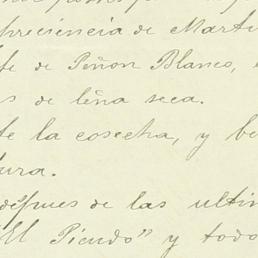 de Marti
de Peñon Blanco,
s de leña seca.
te la cosecha, y be
tura.
después de las ultim
"El Picudo" y todo